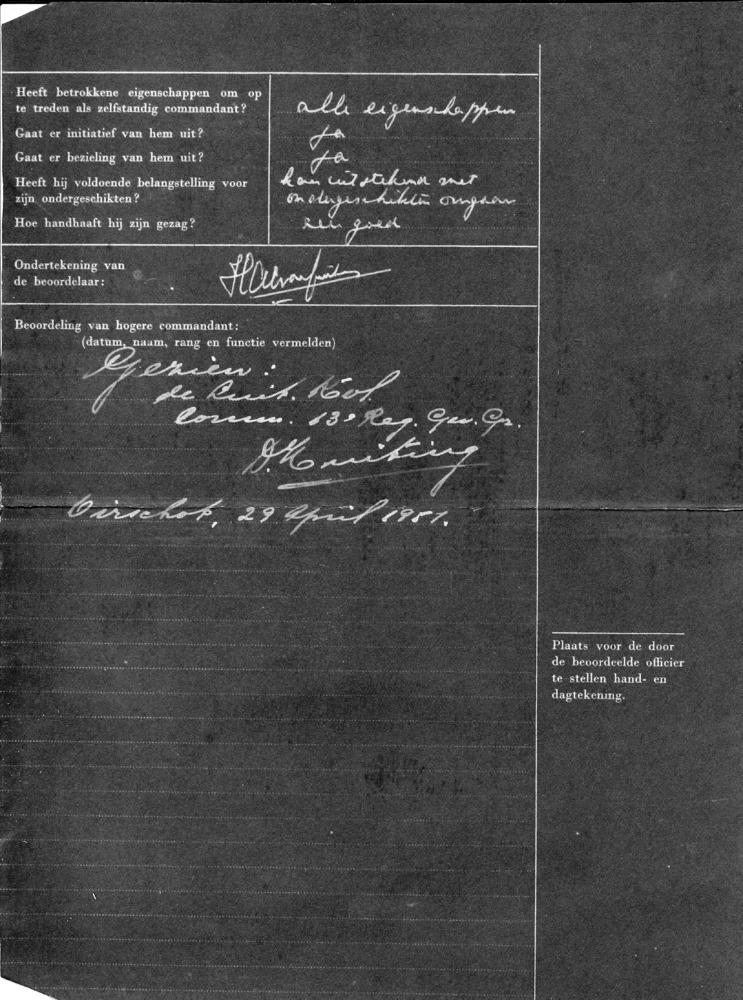 Heeft betrokkene eigenschappen om op
te treden als zelfstandig commandant?
alle eigenschappen
Gaat er initiatief van hem uit?
ja
Gaat er bezieling van hem uit?
ja
Heeft hij voldoende belangstelling voor
zijn ondergeschikten?
kan uitstekend met
ondergeschikten omgaan
Hoe handhaaft hij zijn gezag?
zeer goed
Ondertekening van
de beoordelaar:
Beoordeling van hogere commandant:
(datum, naam, rang en functie vermelden)
Gezien:
de Luit. Kol.
Comm. 13e Reg. Gev. Gr.
Oirschot, 29 April 1951.
Plaats voor de door
de beoordeelde officier
te stellen hand- en
dagtekening.